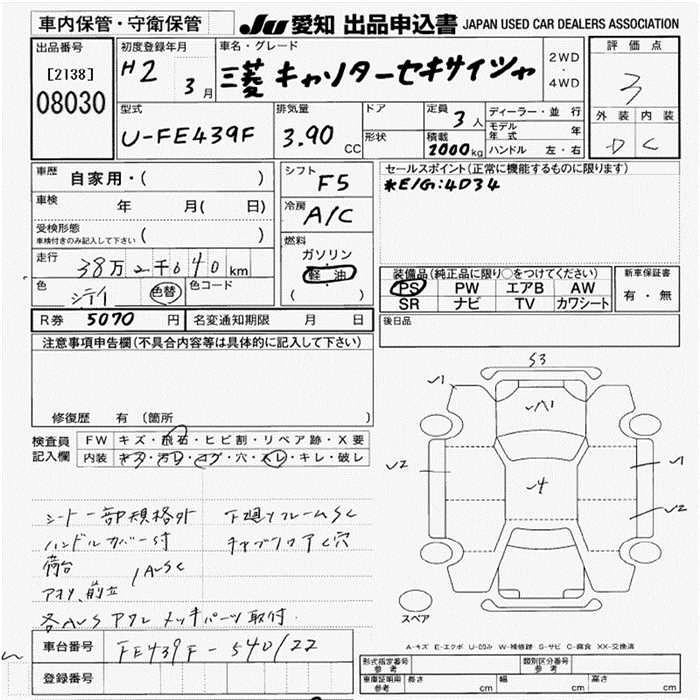 車内保管・守衛保管
JU 愛知 出品申込書 JAPAN USED CAR DEALERS ASSOCIATION
出品番号
[2138]
08030
初度登録年月
H2 3月
車名・グレード
三菱 キャリターセキサイシャ
2WD
・
4WD
評価点
3
外装 内装
D C
型式
U-FE439F
排気量
3.90 CC
ドア
形状
定員
3人
積載
2000kg
ディーラー・並行
モデル年式 年
ハンドル 左・右
車歴
自家用・( )
車検
年 月( 日)
受検形態
車検付きのみ記入して下さい ( )
走行
38万2千640km
色
色替
色コード
シフト
F5
冷房
A/C
燃料
ガソリン
軽油
( )
セールスポイント(正常に機能するものに限ります)
*E/G:4D34
装備品(純正品に限り○をつけてください)
PS PW エアB AW
SR ナビ TV カワシート
新車保証書
有・無
R券 5070 円
名変通知期限 月 日
後日品
注意事項申告欄(不具合内容等は具体的に記入して下さい)
修復歴 有 (箇所 )
検査員
記入欄
FW キズ・飛石・ヒビ割・リペア跡・X要
内装 キズ・汚レ・コゲ・穴・スレ・キレ・破レ
シート一部規格外
下廻リフレームSC
ハンドルカバー付
荷台
アオリ、前立
AUSC
メッキパーツ取付
S3
√1
√2
√4
√1
√2
スペア
A-キズ E-エクボ U-凹み W-補修跡 S-サビ C-腐食 XX-交換済
車台番号
FE439F-540122
登録番号
型式指定番号
参考
類別区分番号
参考
車庫証明用
参考
長さ cm
幅 cm
高さ cm